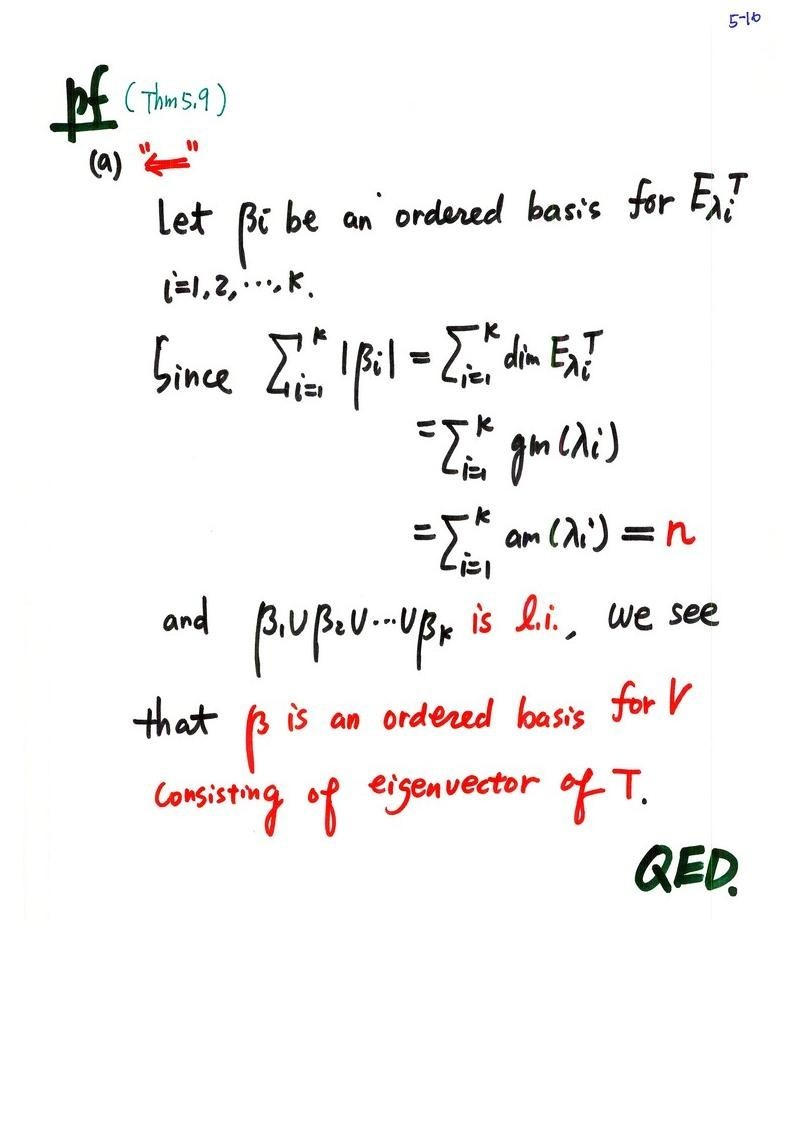 5-10
pf (Thm 5.9)
(a) "⇐"
Let βi be an ordered basis for E_{λi}^T
i=1,2,⋯,k.
Since ∑_{i=1}^k |βi| = ∑_{i=1}^k dim E_{λi}^T
=∑_{i=1}^k gm(λi)
=∑_{i=1}^k am(λi) = n
and β1∪β2∪⋯∪βk is l.i., we see
that β is an ordered basis for V
consisting of eigenvector of T.
QED.